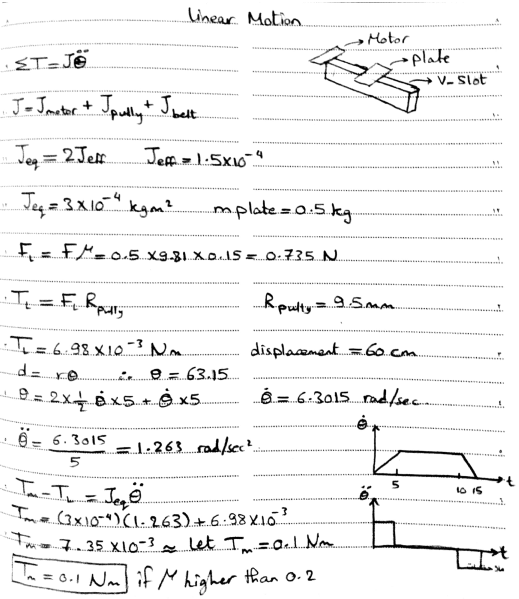 Linear Motion
Motor
plate
V-Slot
ΣT = Jθ̈
J = J_motor + J_pully + J_belt
J_eq = 2J_eff    J_eff = 1.5x10⁻⁴
J_eq = 3x10⁻⁴ kgm²    m plate = 0.5 kg
F_L = Fμ = 0.5 x9.81 x 0.15 = 0.735 N
T_L = F_L R_pully    R_pully = 9.5mm
T_L = 6.98 x10⁻³ Nm    displacement = 60 cm
d = rθ ∴ θ = 63.15
θ = 2x½ θ̇ x5 + θ̇ x5    θ̇ = 6.3015 rad/sec
θ̈ = 6.3015/5 = 1.263 rad/sec²
θ̇
t
5
10 15
T_m - T_L = J_eq θ̈
θ̈
t
T_m = (3x10⁻⁴)(1.263) + 6.98x10⁻³
T_m = 7.35 x10⁻³ ≈ let T_m = 0.1 Nm
T_m = 0.1 Nm if μ higher than 0.2